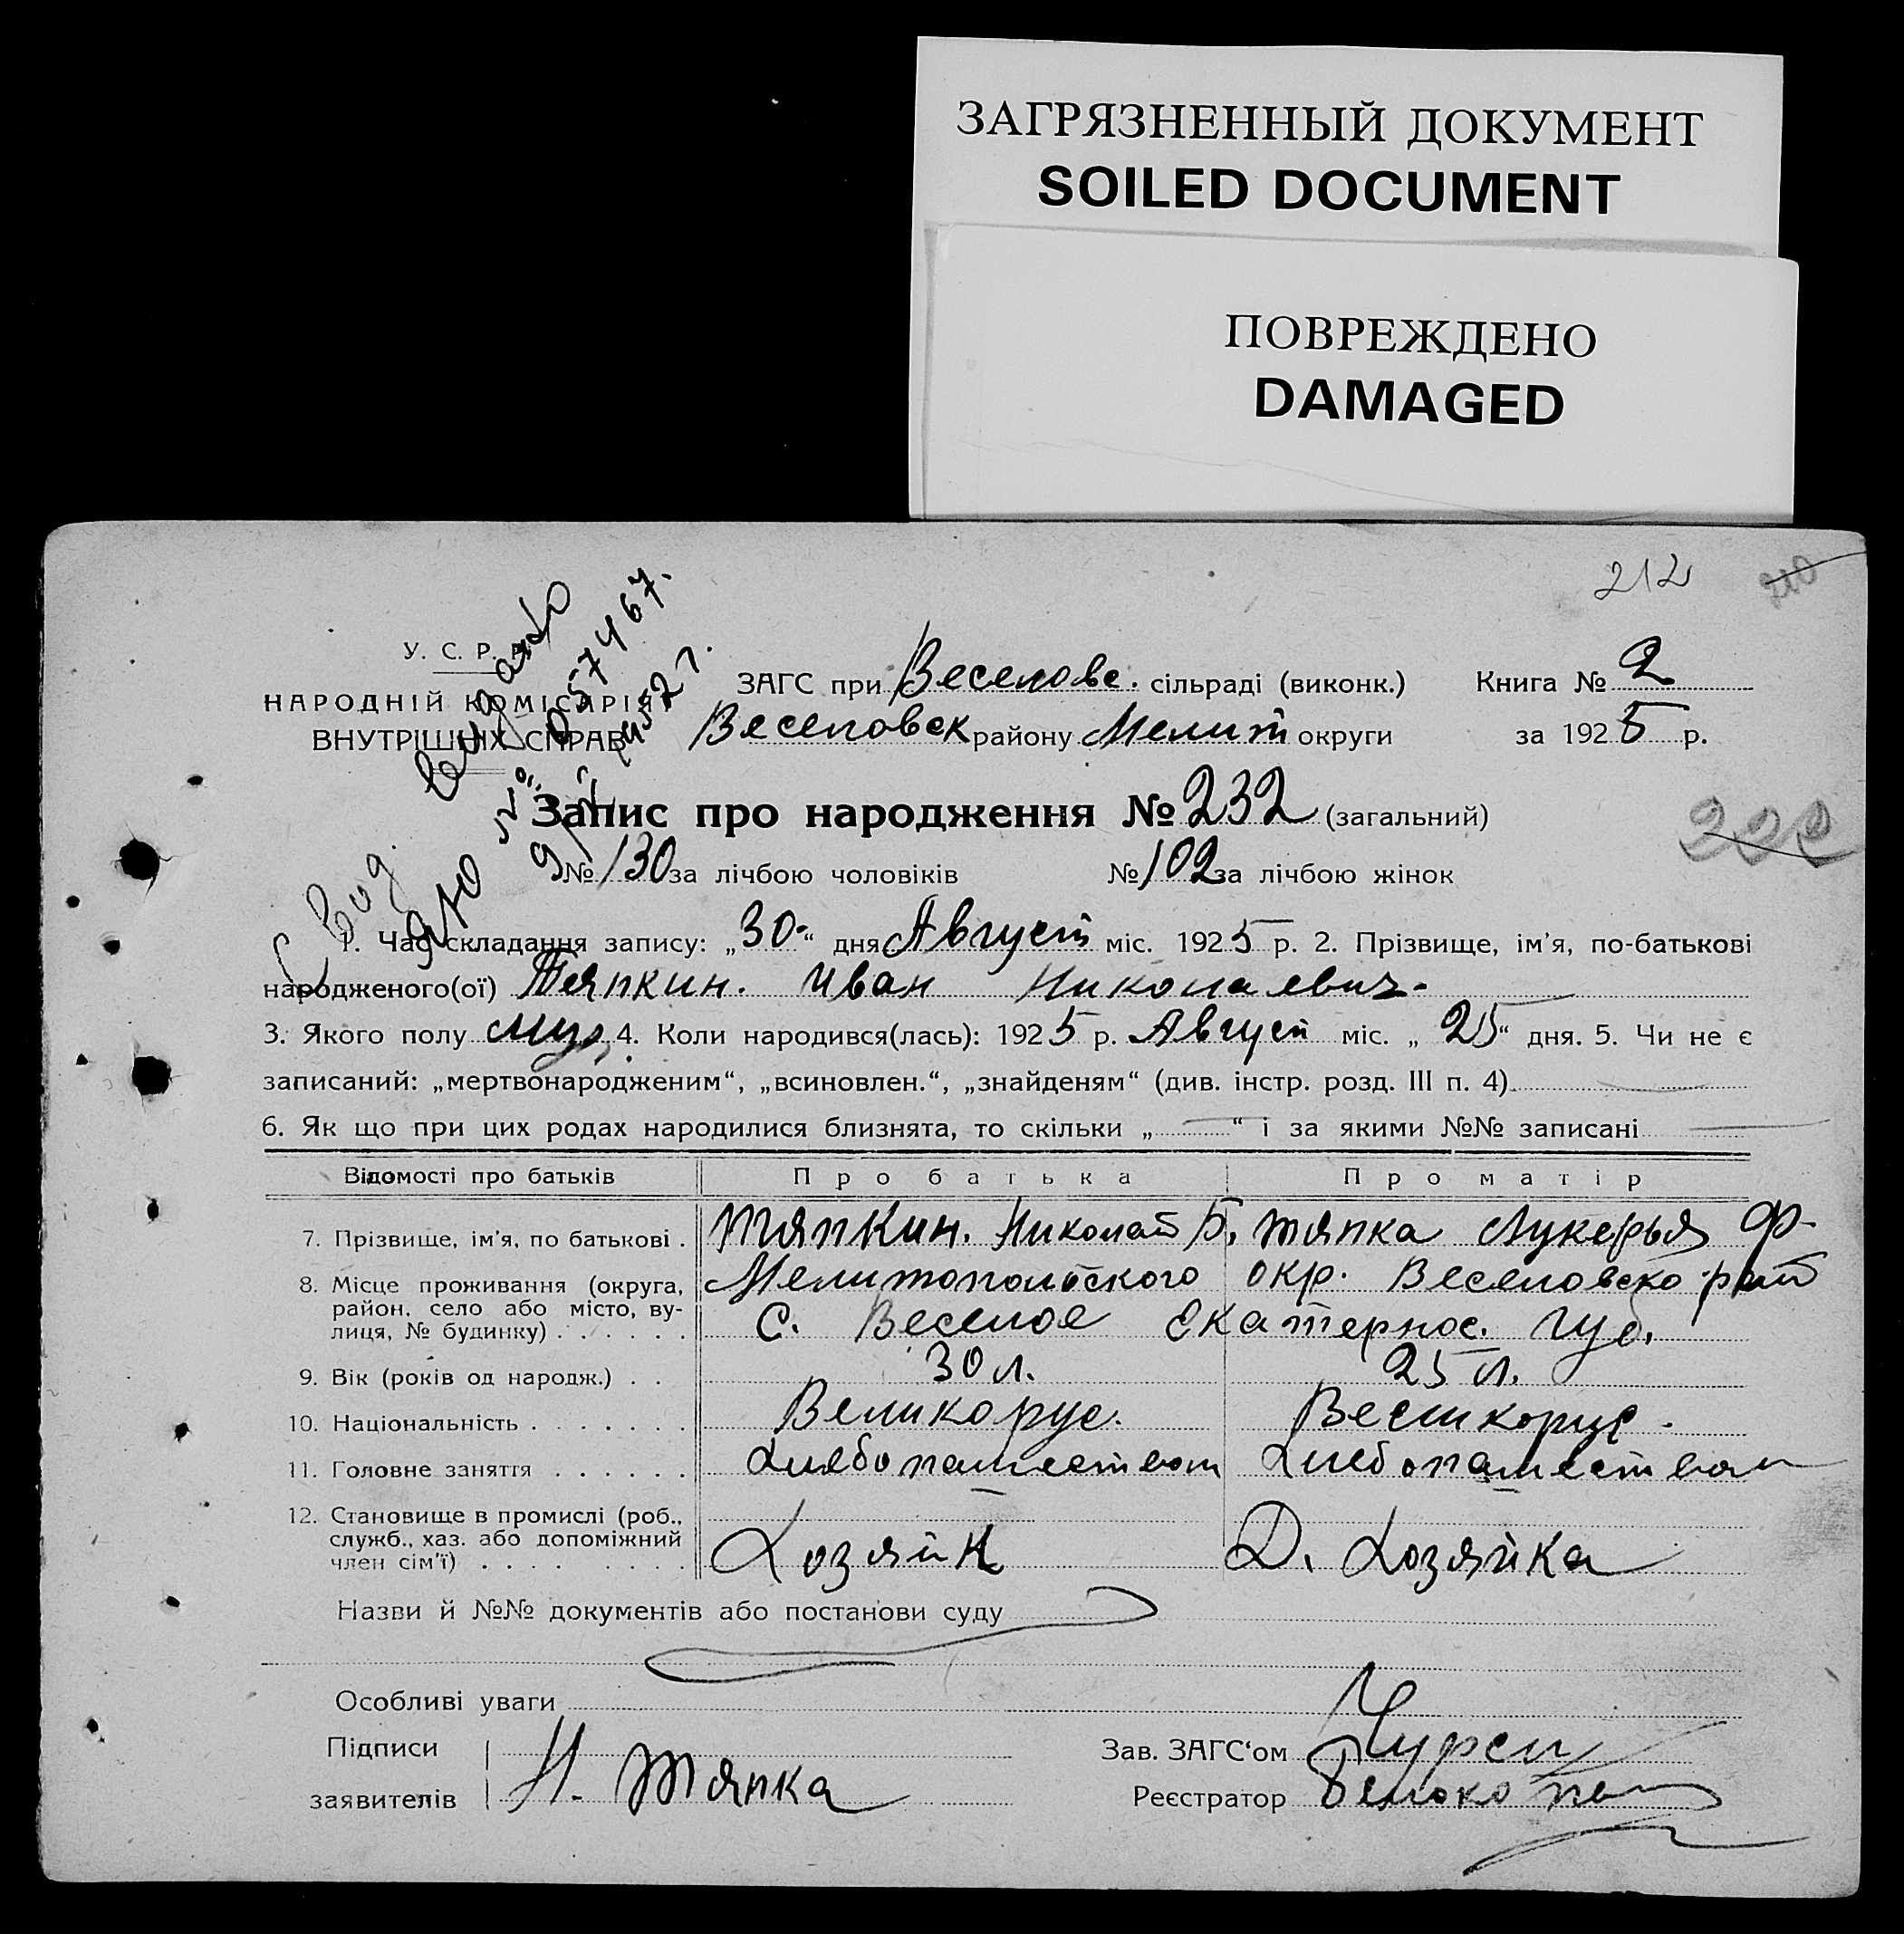 ЗАГРЯЗНЕННЫЙ ДОКУМЕНТ
SOILED DOCUMENT
ПОВРЕЖДЕНО
DAMAGED
212
210
У. С. Р. Р.
НАРОДНІЙ КОМІСАРІЯТ
ВНУТРІШНІХ СПРАВ
ЗАГС при Веселовс. сільраді (виконк.) Книга № 2
Веселовск району Мелит округи за 1925 р.
Запис про народження № 232 (загальний)
№ 130 за лічбою чоловіків № 102 за лічбою жінок
1. Час складання запису: „30“ дня Август міс. 1925 р. 2. Прізвище, ім'я, по-батькові
народженого(ої) Тяпкин. Иван Николаевич.
3. Якого полу муж. 4. Коли народився(лась): 1925 р. Август міс. „25“ дня. 5. Чи не є
записаний: „мертвонародженим“, „всиновлен.“, „знайденям“ (див. інстр. розд. III п. 4)
6. Як що при цих родах народилися близнята, то скільки „—“ і за якими №№ записані —
Відомості про батьків Про батька Про матір
7. Прізвище, ім'я, по батькові . Тяпкин. Николай Б. Тяпка Лукерья Ф.
8. Місце проживання (округа, район, село або місто, вулиця, № будинку) Мелитопольского окр. Веселовско рай
с. Веселое Екатернос. губ.
9. Вік (років од народж.) . . 30 л. 25 л.
10. Національність Великорус. Великорус.
11. Головне заняття Хлебопашеством Хлебопашеством
12. Становище в промислі (роб., служб., хаз. або допоміжний член сім'ї) Хозяин Д. Хозяйка
Назви й №№ документів або постанови суду
Особливі уваги
Підписи заявителів Н. Тяпка
Зав. ЗАГС'ом
Реєстратор